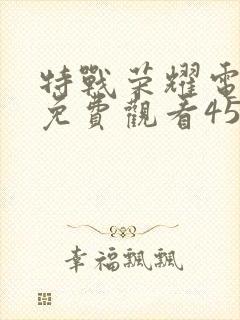 特戰荣耀電
免費觀看45
幸福飄飄